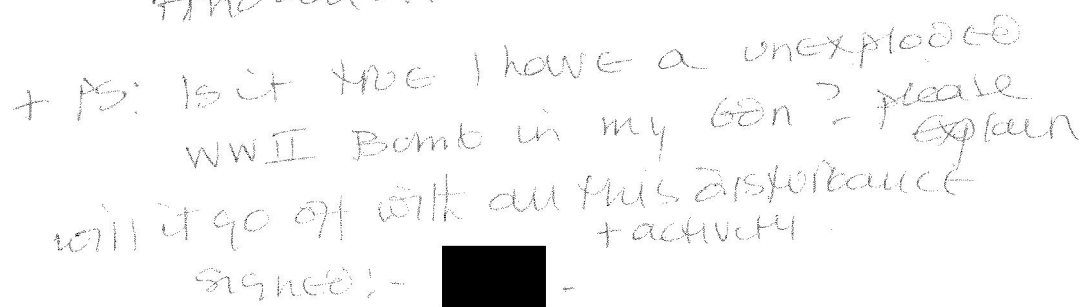 + PS: Is it true I have a unexploded
WWII Bomb in my Gdn? - please
Explain
will it go off with all this disturbance
+ activity.
signed:- -